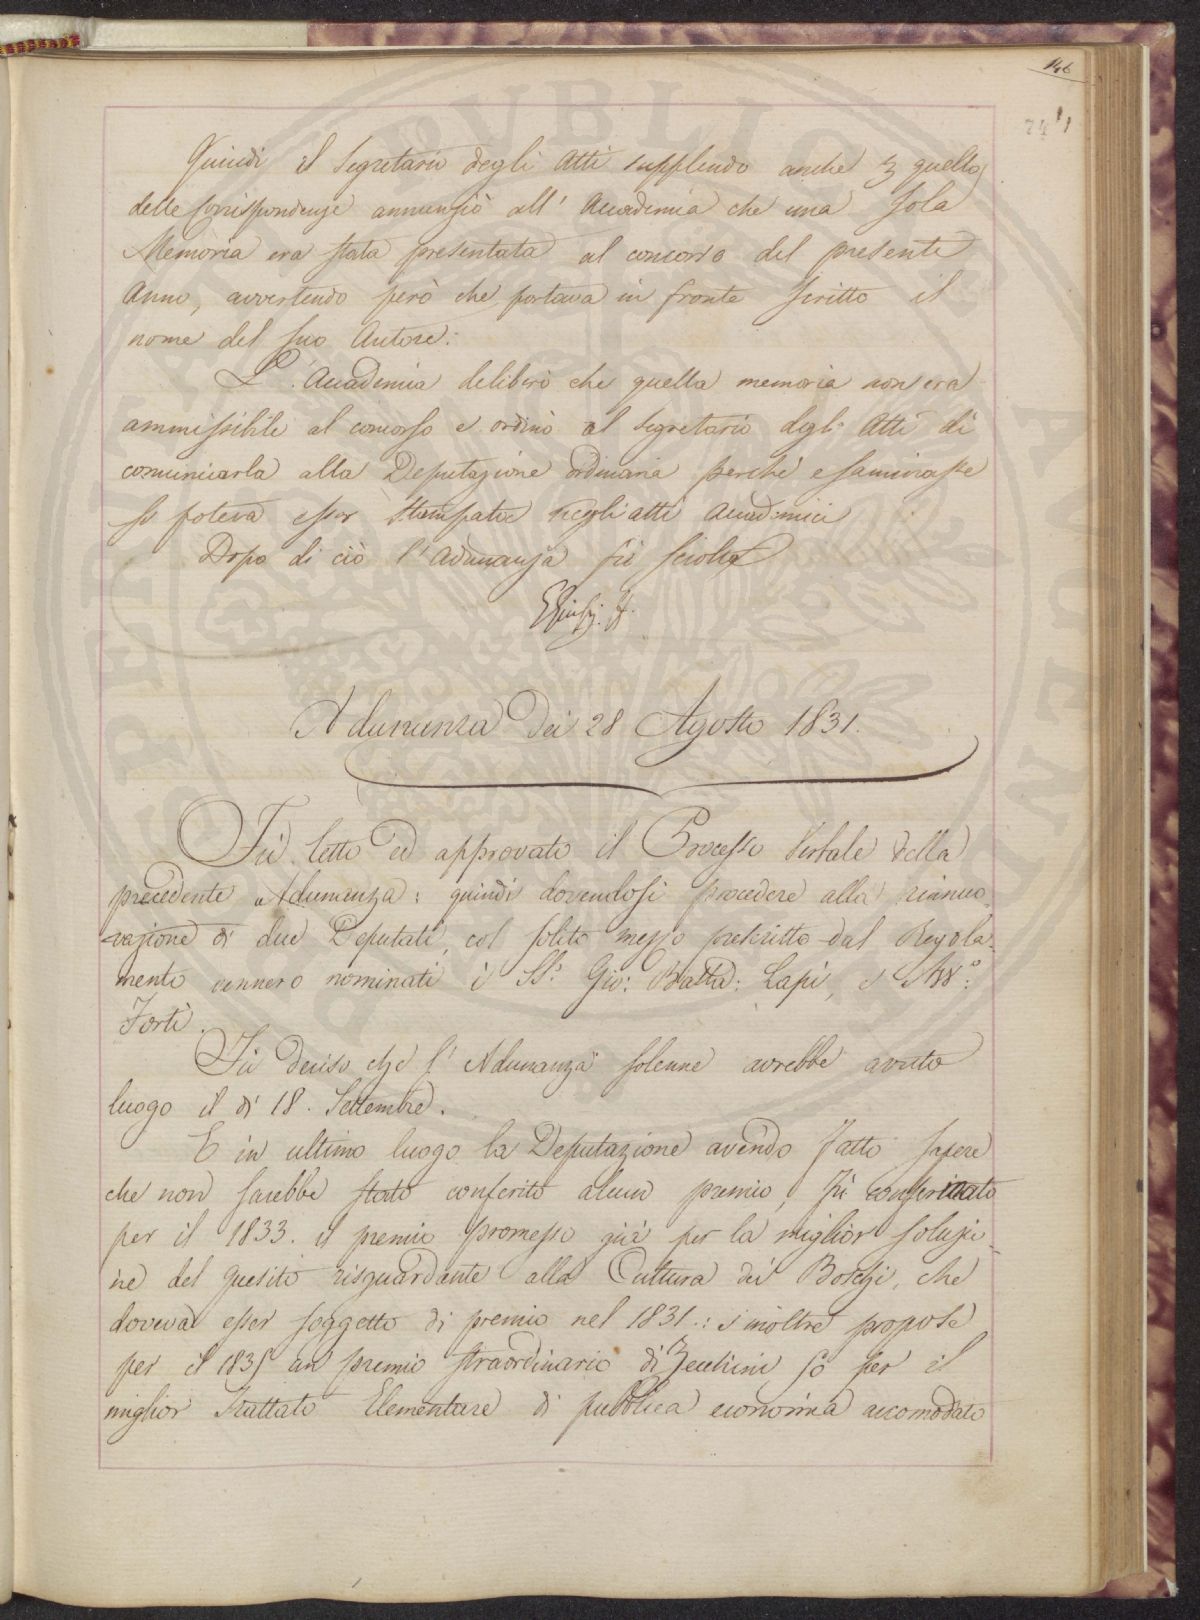 146
74
Quindi il Segretario degli Atti supplendo anche quello
delle Corrispondenze annunziò all' Accademia che una sola
Memoria era stata presentata al concorso del presente
Anno, avvertendo però che portava in fronte scritto il
nome del suo Autore.
L' Accademia deliberò che quella memoria non era
ammissibile al concorso e ordinò al Segretario degli Atti di
comunicarla alla Deputazione ordinaria perchè esaminasse
se poteva esser stampata negli atti accademici
Dopo di ciò l'Adunanza fù sciolta
Adunanza dei 28 Agosto 1831.
Fù letto ed approvato il Processo Verbale della
precedente Adunanza: quindi dovendosi procedere alla rinnuo-
vazione di due Deputati, col solito mezzo prescritto dal Regola-
mento vennero nominati i SS.i Gio: Batta: Lapi, e
Forti.
Fù deciso che l' Adunanza solenne avrebbe avuto
luogo il dì 18. Settembre.
E in ultimo luogo la Deputazione avendo fatto sapere
che non sarebbe stato conferito alcun premio, fù confermato
per il 1833. il premio promesso già per la miglior soluzio-
ne del quesito risguardante alla Cultura dei Boschi, che
doveva esser soggetto di premio nel 1831.: e inoltre propose
per il 1835 un premio straordinario di Zecchini 50 per il
miglior Trattato Elementare di pubblica economia accomodato
PVBLIC